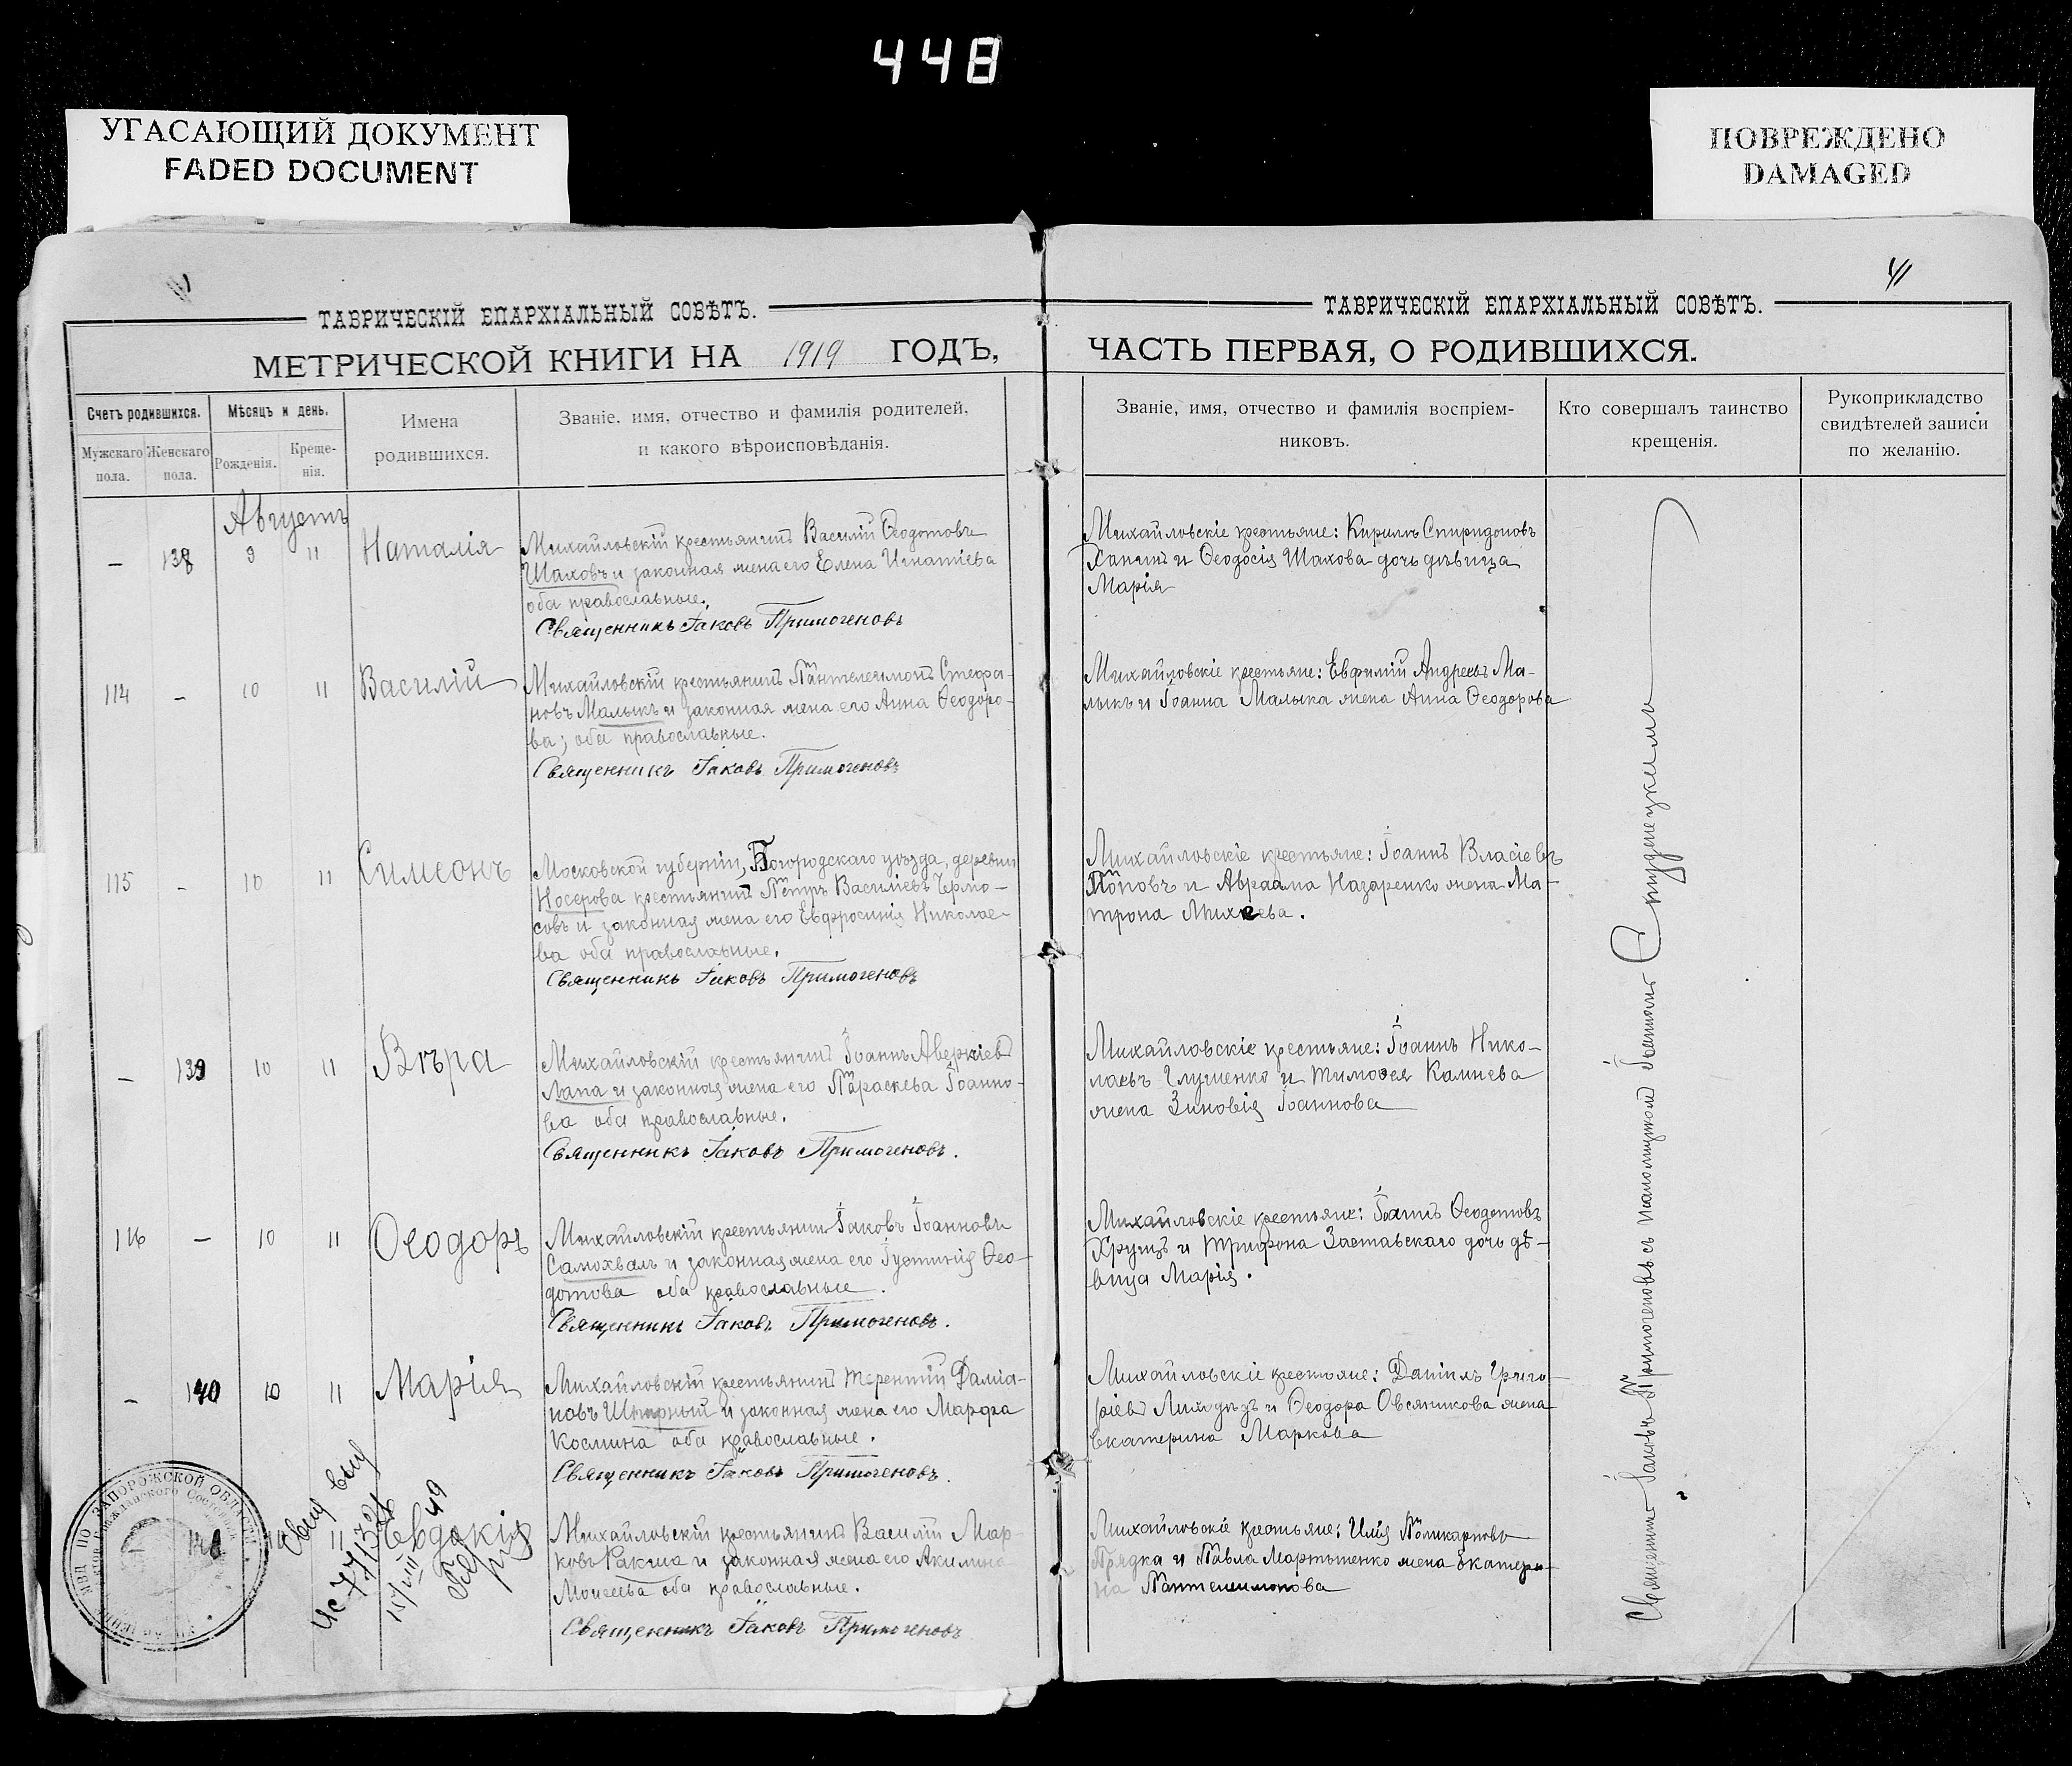 448
УГАСАЮЩИЙ ДОКУМЕНТ
FADED DOCUMENT
ПОВРЕЖДЕНО
DAMAGED
41
ТАВРИЧЕСКІЙ ЕПАРХІАЛЬНЫЙ СОВѢТЪ.
ТАВРИЧЕСКІЙ ЕПАРХІАЛЬНЫЙ СОВѢТЪ.
МЕТРИЧЕСКОЙ КНИГИ НА 1919 ГОДЪ,
ЧАСТЬ ПЕРВАЯ, О РОДИВШИХСЯ.
Счетъ родившихся.
Мужскаго пола.
Женскаго пола.
Мѣсяцъ и день.
Рожденія.
Креще-
нія.
Имена
родившихся.
Званіе, имя, отчество и фамилія родителей,
и какого вѣроисповѣданія.
Званіе, имя, отчество и фамилія воспріем-
никовъ.
Кто совершалъ таинство
крещенія.
Рукоприкладство
свидѣтелей записи
по желанію.
Августъ
— 138 9 11 Наталія
Михайловскій крестьянинъ Василій Ѳеодотовъ
Шаховъ и законная жена его Елена Игнатіева
оба православные.
Священникъ Іаковъ Примогеновъ
Михайловскіе крестьяне: Кириллъ Спиридоновъ
Ханинъ и Ѳеодосія Шахова дочь дѣвица
Марія
114 — 10 11 Василій
Михайловскій крестьянинъ Пантелеимонъ Стефа-
новъ Малыкъ и законная жена его Анна Ѳеодоро-
ва; оба православные.
Священникъ Іаковъ Примогеновъ
Михайловскіе крестьяне: Евфимій Андреевъ Ма-
лыкъ и Іоанна Малыка жена Анна Ѳеодорова
115 — 10 11 Симеонъ
Московской губерніи, Богородскаго уѣзда, деревни
Носерова крестьянинъ Петръ Василіевъ Чермо-
совъ и законная жена его Евфросинія Николае-
ва оба православные.
Священникъ Іаковъ Примогеновъ
Михайловскіе крестьяне: Іоаннъ Власіевъ
Поповъ и Авраама Назаренко жена Ма-
трона Михеева.
— 139 10 11 Вѣра
Михайловскій крестьянинъ Іоаннъ Аверкіевъ
Лапа и законная жена его Параскева Іоанно-
ва оба православные.
Священникъ Іаковъ Примогеновъ.
Михайловскіе крестьяне: Іоаннъ Нико-
лаевъ Глущенко и Тимоѳея Камнева
жена Зиновія Іоаннова
116 — 10 11 Ѳеодоръ
Михайловскій крестьянинъ Іаковъ Іоанновъ
Самохвалъ и законная жена его Іустинія Ѳео-
дотова оба православные.
Священникъ Іаковъ Примогеновъ.
Михайловскіе крестьяне: Іоаннъ Ѳеодотовъ
Хрущъ и Трифона Заставскаго дочь дѣ-
вица Марія.
— 140 10 11 Марія
Михайловскій крестьянинъ Терентій Даміа-
новъ и законная жена его Марфа
Космина оба православные.
Священникъ Іаковъ Примогеновъ.
Михайловскіе крестьяне: Даніилъ Григо-
ріевъ Лиходѣзъ и Ѳеодора Овсяникова жена
Екатерина Маркова
141 10 11 Евдокія
Михайловскій крестьянинъ Василій Мар-
ковъ Ракша и законная жена его Акилина
Моисеева оба православные.
Священникъ Іаковъ Примогеновъ
Михайловскіе крестьяне: Илія Поликарповъ
Прядка и Павла Мартыненко жена Екатери-
на Пантелеимонова
Священникъ Іаковъ Примогеновъ съ псаломщикомъ Іоанномъ Студенецкимъ